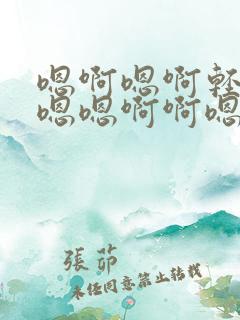 嗯啊嗯啊轻
嗯嗯啊啊嗯
张茆
未经同意禁止转载